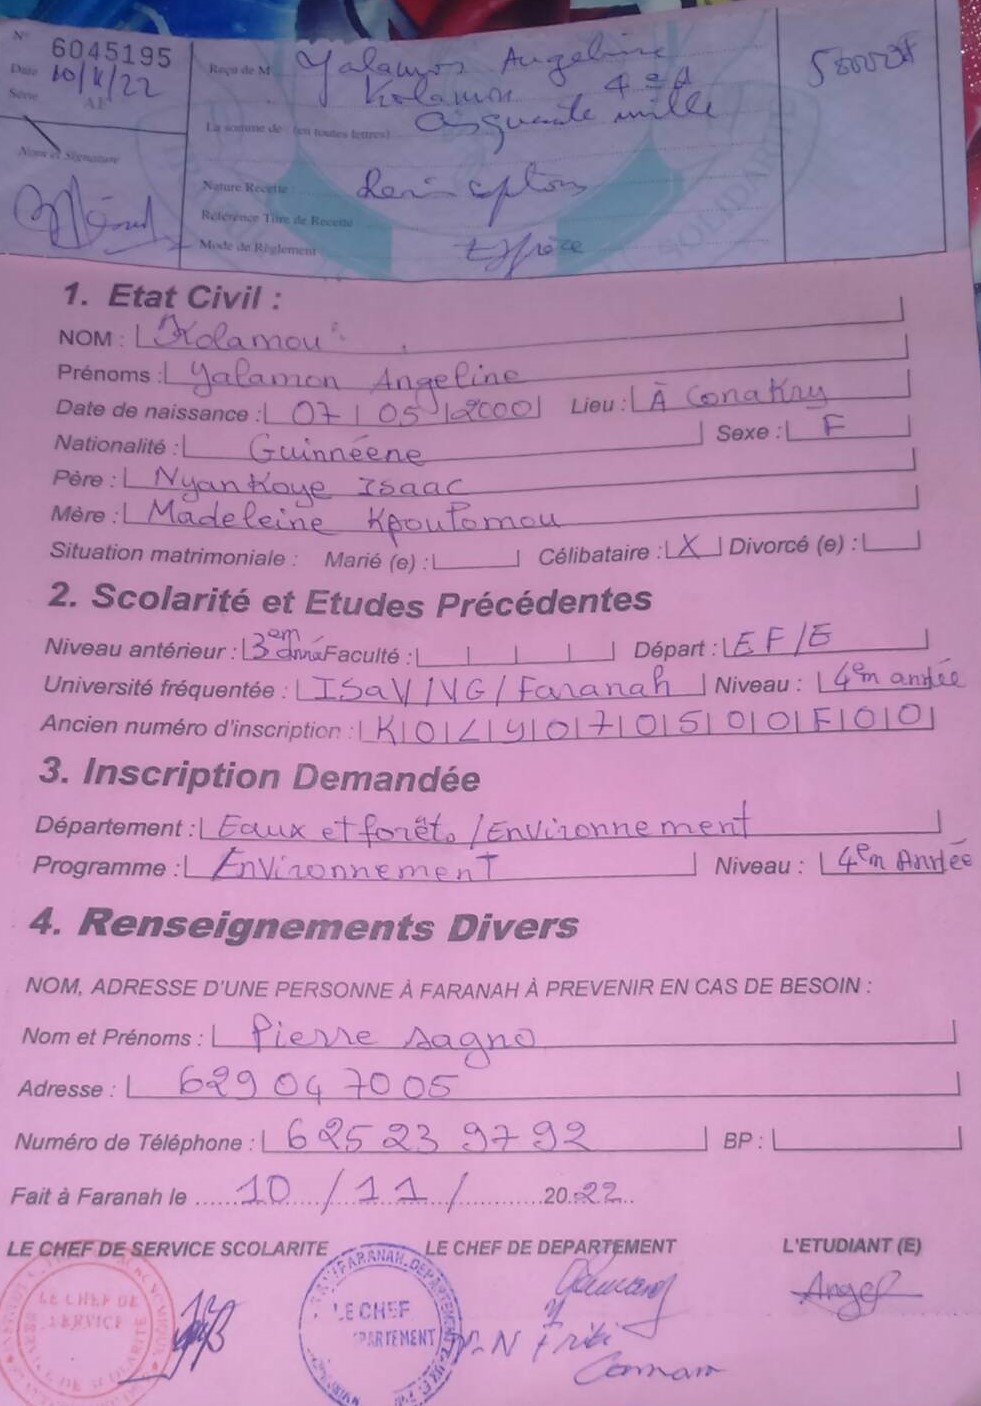 N° 6045195
Date 10/11/22
Série AF
Nom et Signature
Reçu de M Yalamon Angeline
Kolamou 4e A
La somme de (en toutes lettres) cinquante mille
Nature Recette : Reinscription
Référence Titre de Recette
Mode de Règlement : Espèce
1. Etat Civil :
NOM : Kolamou
Prénoms : Yalamon Angeline
Date de naissance : 07 05 2000 Lieu : À Conakry
Nationalité : Guinnéene Sexe : F
Père : Nyankoye Isaac
Mère : Madeleine Kpoulomou
Situation matrimoniale : Marié (e) : Célibataire : X Divorcé (e) :
2. Scolarité et Etudes Précédentes
Niveau antérieur : 3em année Faculté : Départ : EF/E
Université fréquentée : ISaV/VG/Faranah Niveau : 4em année
Ancien numéro d'inscription : K O L Y 0 7 0 5 0 0 F 0 0
3. Inscription Demandée
Département : Eaux et forêts /Environnement
Programme : Environnement Niveau : 4em Année
4. Renseignements Divers
NOM, ADRESSE D'UNE PERSONNE À FARANAH À PREVENIR EN CAS DE BESOIN :
Nom et Prénoms : Pierre Sagno
Adresse : 629 04 70 05
Numéro de Téléphone : 625 23 97 92 BP :
Fait à Faranah le 10/11/ 2022
LE CHEF DE SERVICE SCOLARITE LE CHEF DE DEPARTEMENT L'ETUDIANT (E)
LE CHEF DE
SERVICE
LE CHEF
Angel